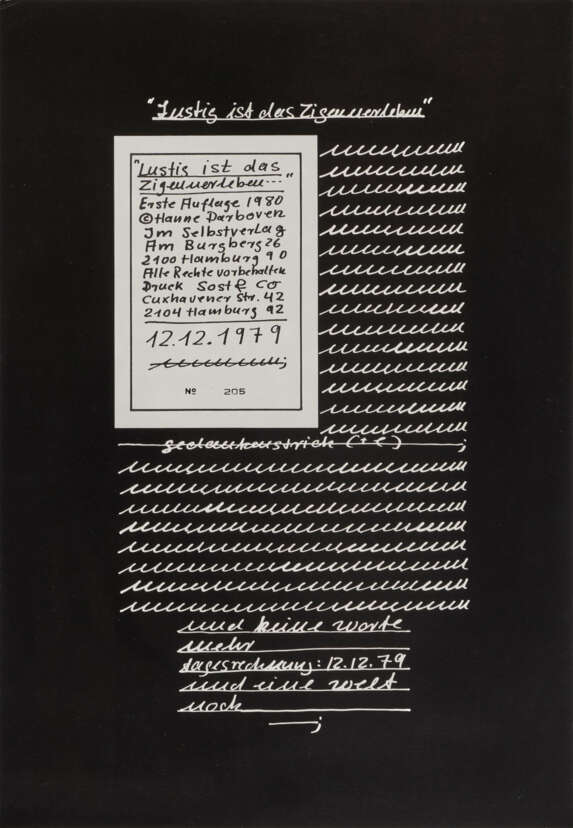 "Lustig ist das Zigeunerleben"
"Lustig ist das
Zigeunerleben..."
Erste Auflage 1980
© Hanne Darboven
Im Selbstverlag
Am Burgberg 26
2100 Hamburg 90
Alle Rechte vorbehalten
Druck Sost & Co
Cuxhavener Str. 42
2104 Hamburg 92
12.12.1979
No 205
gedankenstrich (+ c) ;
und keine worte
mehr
tagesrechnung: 12.12.79
und eine welt
noch
;